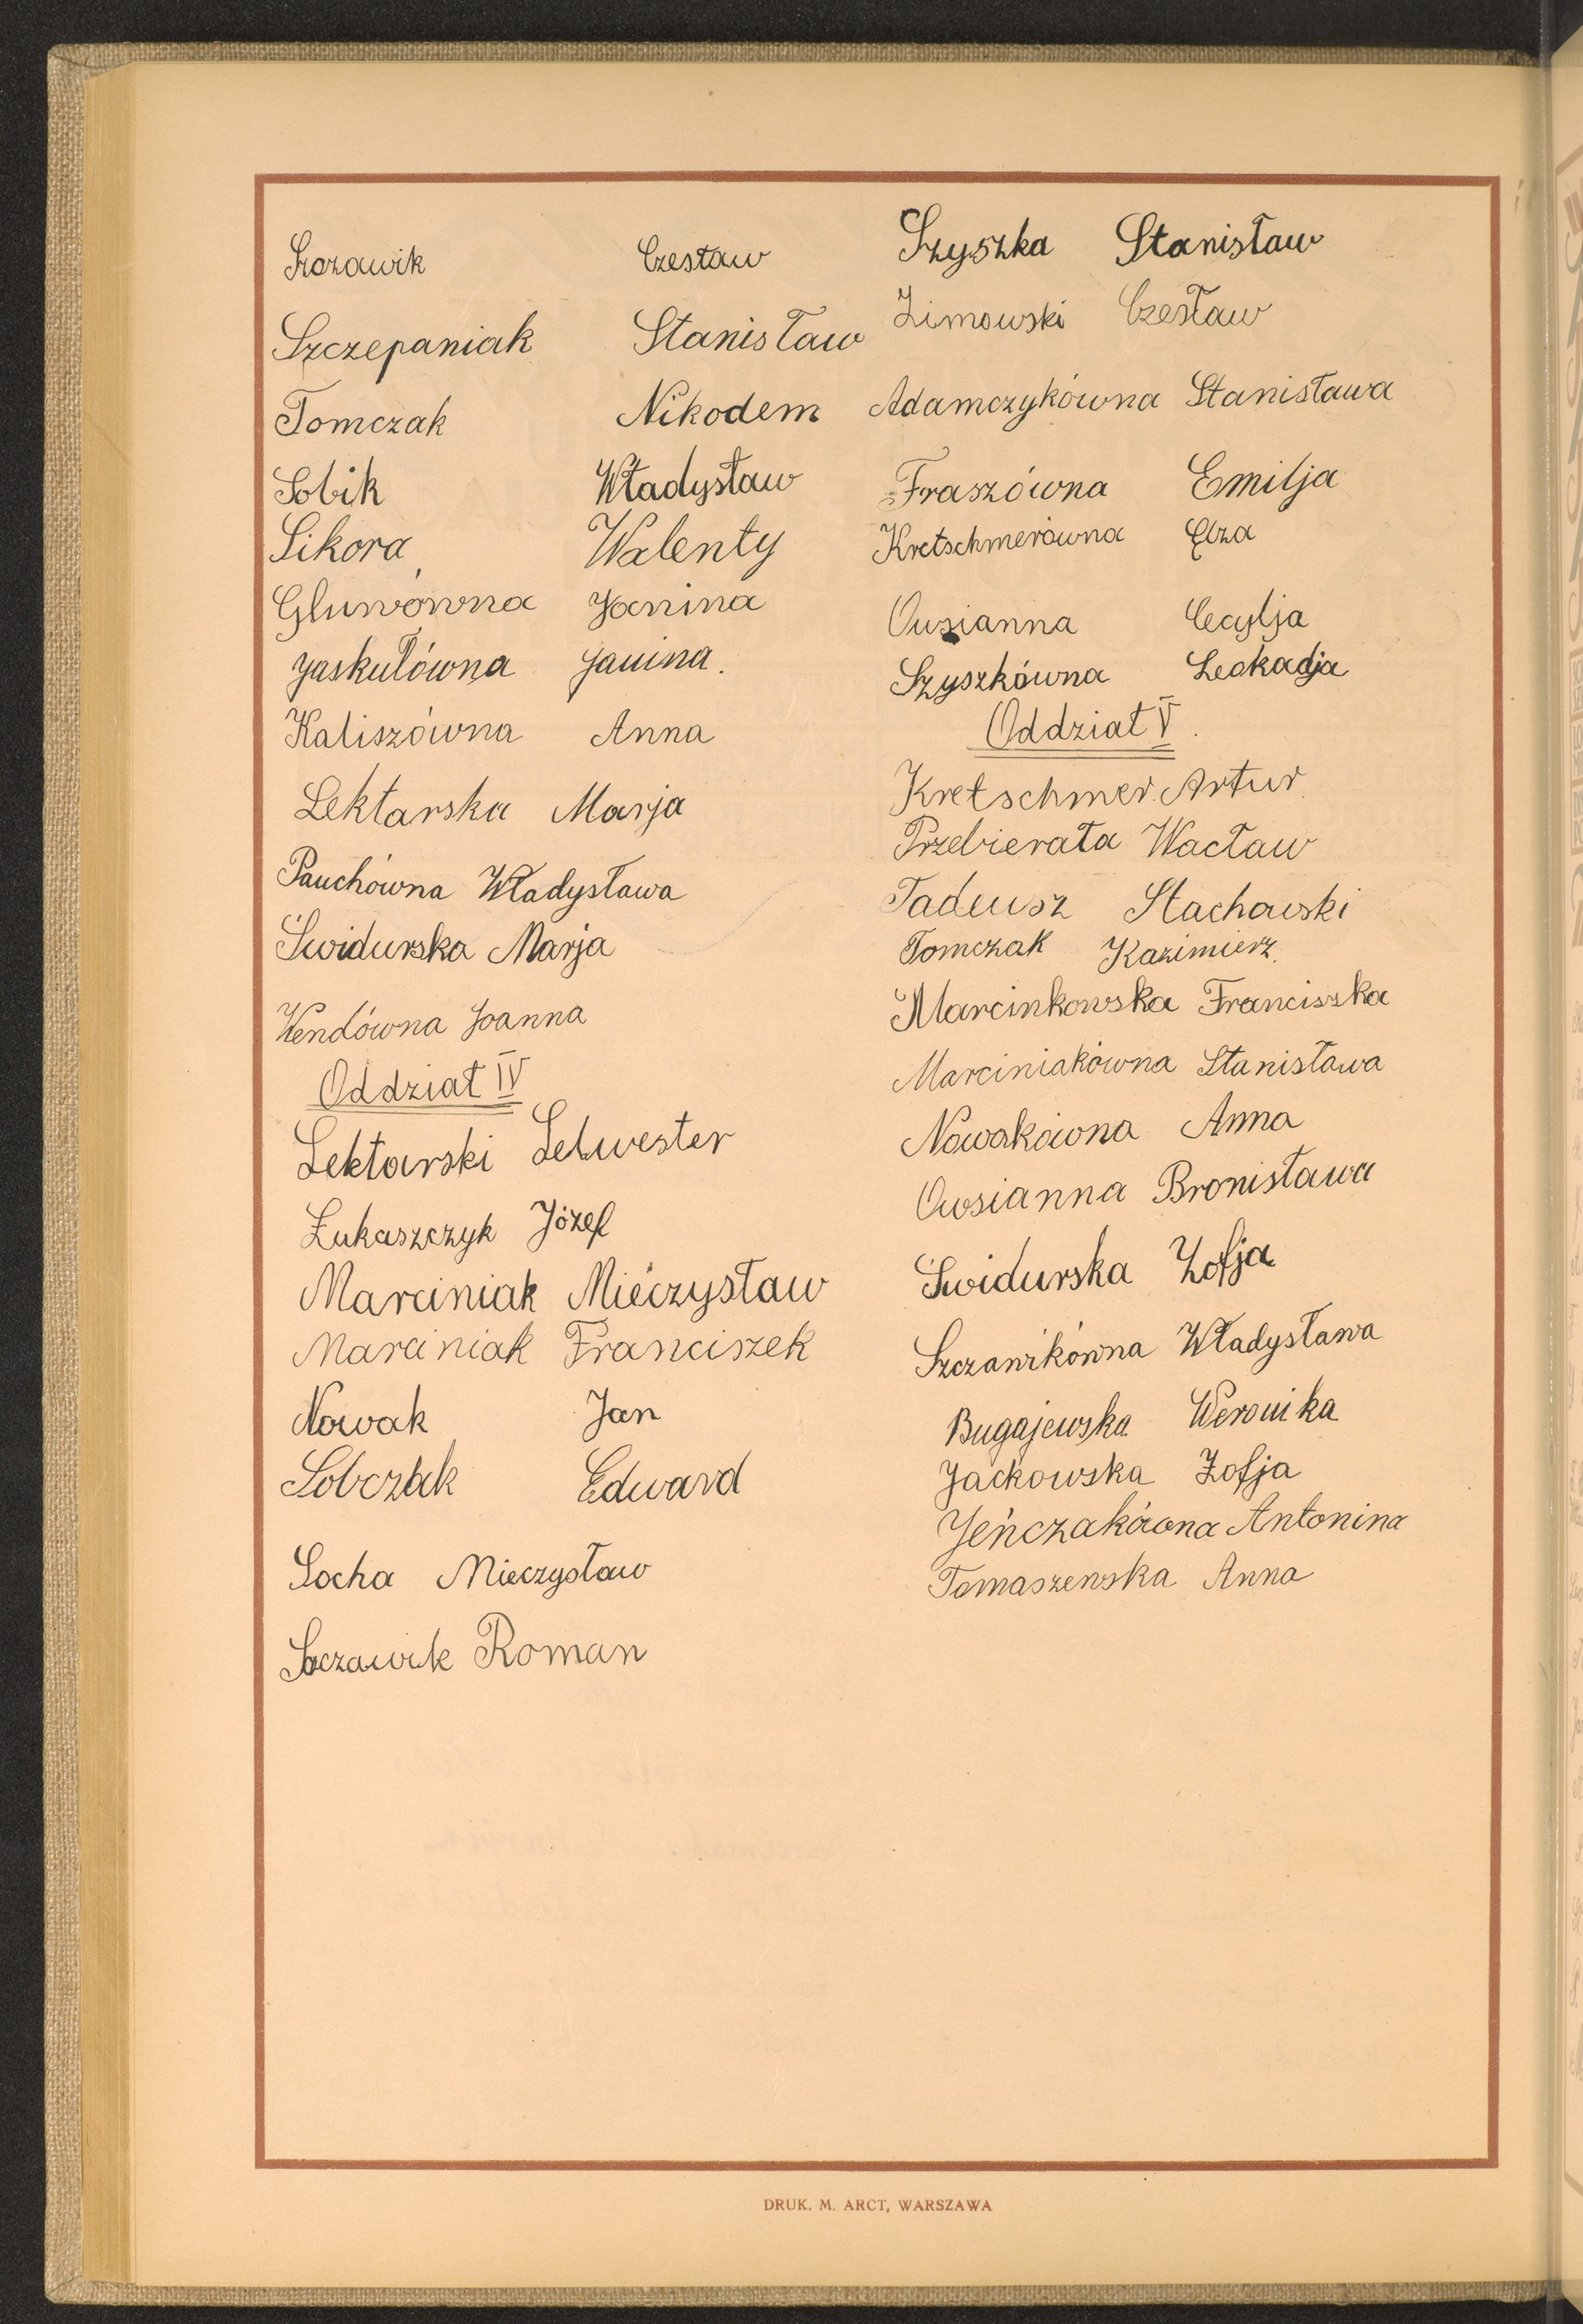 Szczawik Czesław
Szczepaniak Stanisław
Tomczak Nikodem
Sobik Władysław
Sikora Walenty
Janina
Jaskułówna Janina.
Kaliszówna Anna
Lektarska Marja
Pauchówna Władysława
Świdurska Marja
Wendówna Joanna
Oddział IV
Lektarski Selwester
Łukaszczyk Józef
Marciniak Mieczysław
Marciniak Franciszek
Nowak Jan
Sobczak Edward
Socha Mieczysław
Szczawik Roman
Szyszka Stanisław
Zimowski Czesław
Adamczykówna Stanisława
Fraszówna Emilja
Kretschmerówna Elza
Owsianna Cecylja
Szyszkówna Leokadja
Oddział V.
Kretschmer. Artur.
Przebierała Wacław
Tadeusz Stachowski
Tomczak Kazimierz.
Marcinkowska Franciszka
Marciniakówna Stanisława
Nowakówna Anna
Owsianna Bronisława
Świdurska Zofja
Szczawikówna Władysława
Bugajewska Weronika
Jackowska Zofja
Jeńczakówna Antonina
Tomaszewska Anna
DRUK. M. ARCT, WARSZAWA